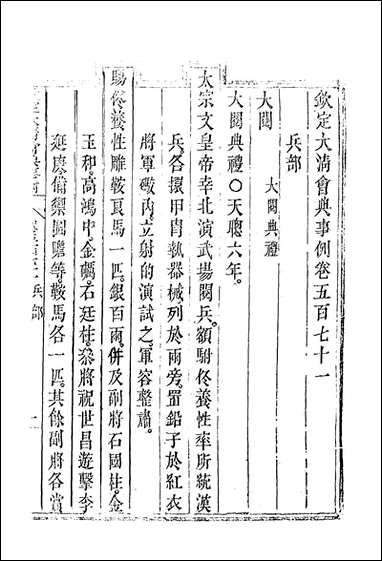 欽定大清會典事例卷五百七十一
兵部
大閱
大閱典禮
大閱典禮〇天聰六年。
太宗文皇帝幸北演武場閱兵。額駙佟養性率所統漢
兵。各擐甲冑。執器械。列於兩旁。置鉛子於紅衣
將軍礮內。立射的演試之。軍容整肅。
賜佟養性雕鞍良馬一匹。銀百兩。併及副將石國柱。金
玉和。高鴻中。金礪。石廷柱。參將祝世昌。遊擊李
延庚。備禦圖瞻等。鞍馬各一匹。其餘副將各賞
兵部
一